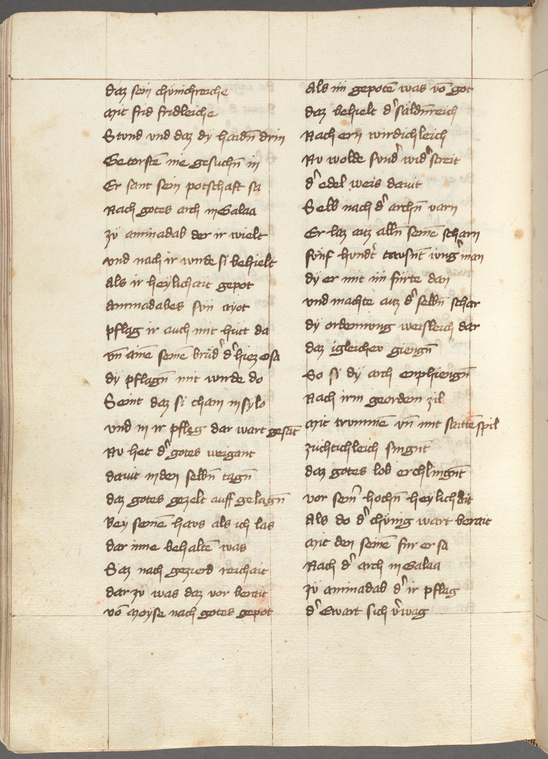 Daz sein chünichreiche
Mit frid fridleiche
Stund vnd daz dy haidn̄ drin
Getorsten nie gesuchn̄ in
Er sant sein potschaft sa
Nach gotes arch in Galaa
Zü aminadab der ir wielt
Vnd nach ir wurde si behielt
Als ir heylichait gepot
Aminadabes sün
Pflag ir auch mit hüt da
Vn̄ aine seine brüd' d' hiez osa
Dy pflagn̄ mit wurde do
Seint daz si cham in sylo
Vnd in ir pfleg dar wart gesat
Nv het d' gotes weigant
Dauit in den selbn̄ tagn̄
Daz gotes gezelt auff gelagn̄
Bey seinē haus als ich las
Dar inne behaltē was
Saz nach gezierd reichait
Dar zü was daz vor berait
Vō Moyse nach gotes gepot
Als im gepotē was vō got
Daz behielt d' säldnreich
Nach ern wirdichleich
Nv wolde sund' wid' streit
D' edel weis dauit
Selb nach d' archn̄ varn
Er laz auz alln̄ seine scharn
Fünf hund't tawsnt iung' man
Dy er mit im fürte dan
Vnd machte auz d' selbn̄ schar
Dy ordenung weisleich dar
Daz igleicher giengn̄
So si dy arch enphiengn̄
Nach irm geordem zil
Mit trummē vn̄ mit saitē spil
Züchtichleich singnt
Daz gotes lob erchlingnt
Vor sein' hochn̄ heylichait
Als do d' chünig wart berait
Mit den seinē für er sa
Nach d' arch in Galaa
Zü aminadab d' ir pflag
D' Ewart sich v'wag